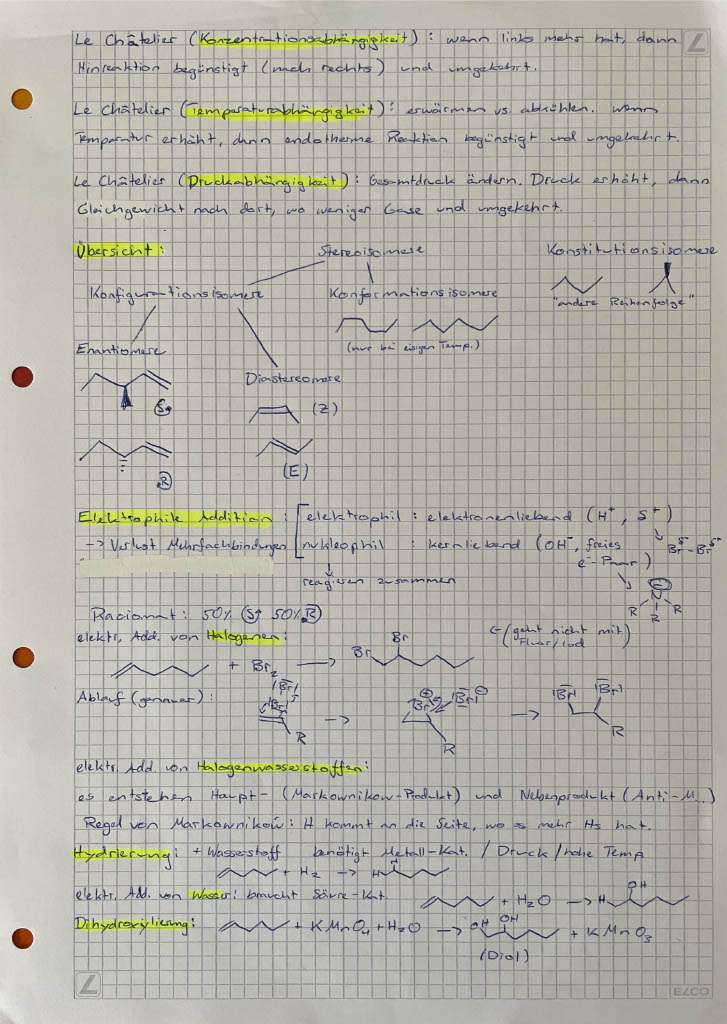 Le Châtelier (Konzentrationsabhängigkeit): wenn links mehr hat, dann
Hinreaktion begünstigt (nach rechts) und umgekehrt.
Le Châtelier (Temperaturabhängigkeit): erwärmen vs. abkühlen. wenn
Temperatur erhöht, dann endotherme Reaktion begünstigt und umgekehrt.
Le Châtelier (Druckabhängigkeit): Gesamtdruck ändern. Druck erhöht, dann
Gleichgewicht nach dort, wo weniger Gase und umgekehrt.
Übersicht:
Stereoisomere
Konstitutionsisomere
Konfigurationsisomere
Konformationsisomere
"andere Reihenfolge"
(nur bei eisigen Temp.)
Enantiomere
Diastereomere
S
(Z)
R
(E)
Elektrophile Addition: elektrophil: elektronenliebend (H⁺, δ⁺)
→ Verlust Mehrfachbindungen nukleophil: kernliebend (OH⁻, freies
e⁻-Paar)
Br^δ⁻-Br^δ⁺
reagieren zusammen
N
R R R
Raciomat: 50% S 50% R
elektr. Add. von Halogenen:
← (geht nicht mit
Fluor/Iod)
+ Br₂ → Br Br
Ablauf (genauer):
|Br|
|Br| δ⁻
R → Br ⊕ |Br| ⊖
R → |Br| |Br|
R
elektr. Add. von Halogenwasserstoffen:
es entstehen Haupt- (Markownikow-Produkt) und Nebenprodukt (Anti-M..)
Regel von Markownikow: H kommt an die Seite, wo es mehr Hs hat.
Hydrierung: + Wasserstoff benötigt Metall-Kat. / Druck / hohe Temp
+ H₂ → H H
elektr. Add. von Wasser: braucht Säure-Kat. + H₂O → H OH
Dihydroxylierung: + KMnO₄ + H₂O → OH OH + KMnO₃
(Diol)
ELCO